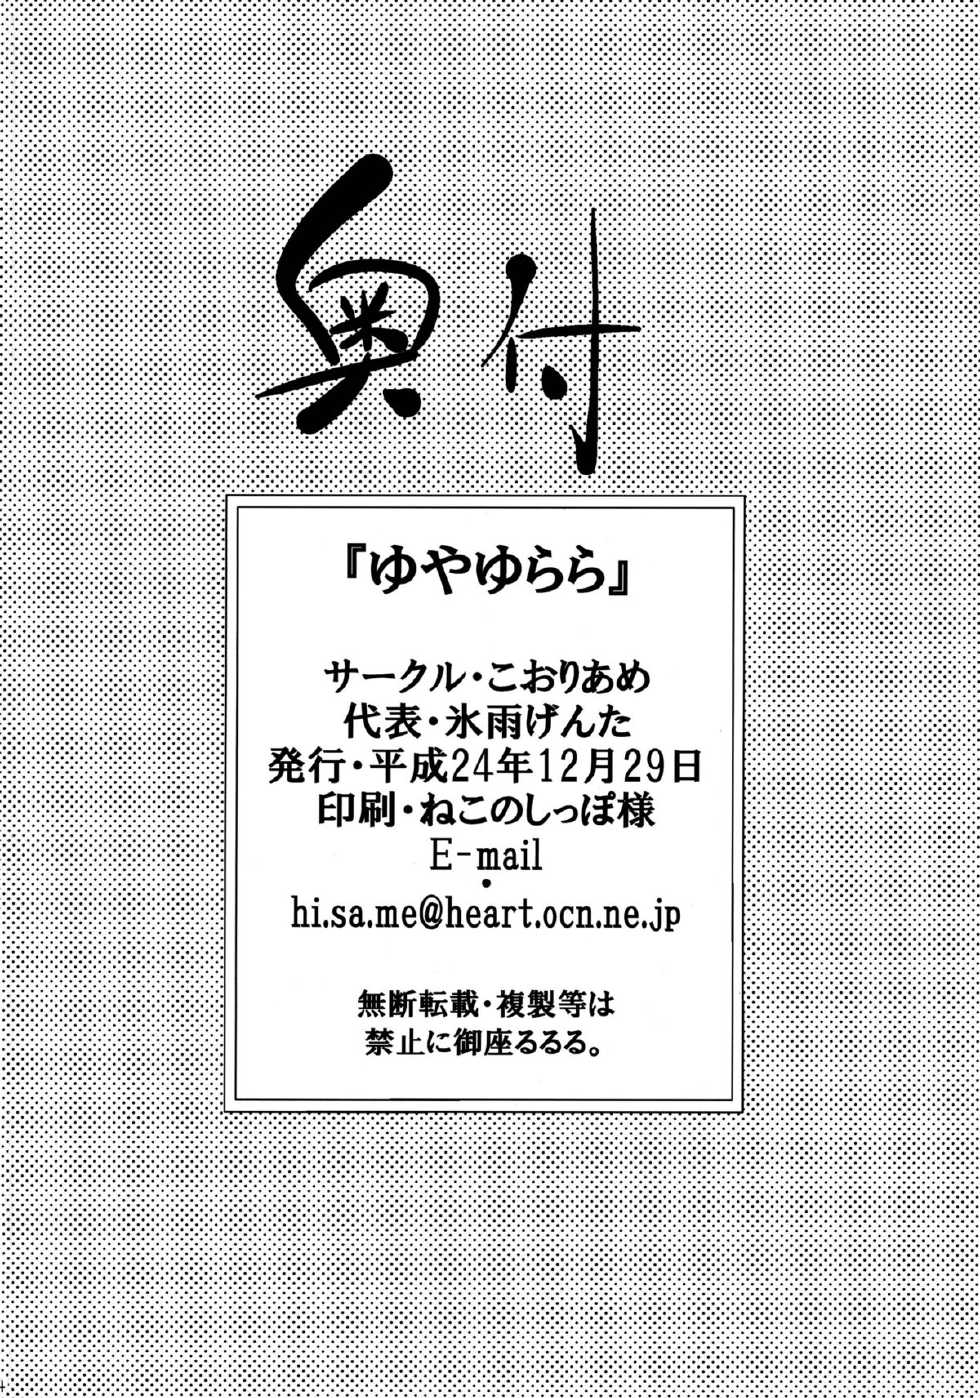 奥付
『ゆやゆらら』
サークル・こおりあめ
代表・氷雨げんた
発行・平成24年12月29日
印刷・ねこのしっぽ様
E-mail
・
hi.sa.me@heart.ocn.ne.jp
無断転載・複製等は
禁止に御座るるる。